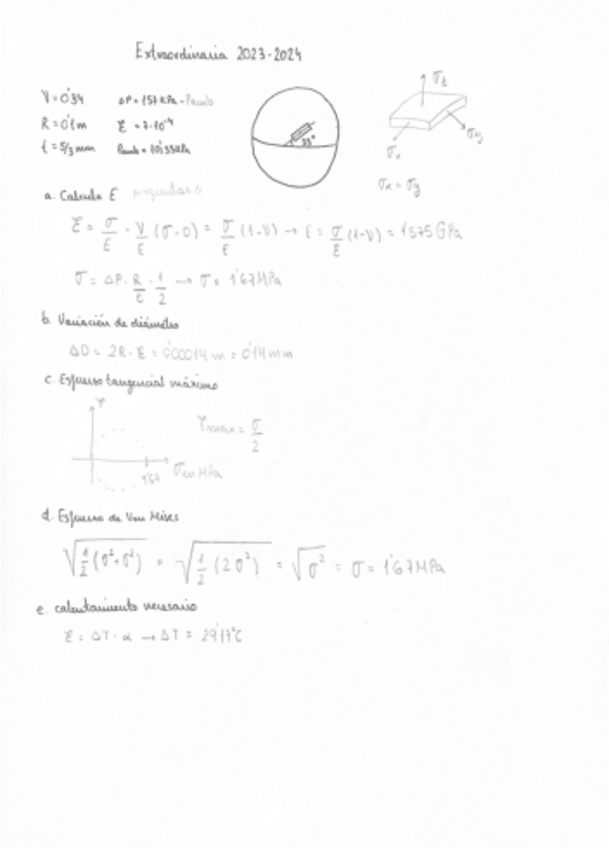 Extraordinaria 2023-2024
V = 0'34 ΔP = 157 KPa - Pamb
R = 0'1 m ε = 7·10⁻⁴
t = 5/3 mm Pamb = 101'33 KPa
33°
σz
σy
σx
σx = σy
a. Calcula E
ε = σ/E - V/E (σ - 0) = σ/E (1-V) → E = σ/ε (1-V) = 1575 GPa
σ = ΔP · R/t · 1/2 → σ = 1'67 MPa
b. Variación de diámetro
ΔD = 2R · ε = 0'00014 m = 0'14 mm
c. Esfuerzo tangencial máximo
τ
τmax = σ/2
1'67 σ en MPa
d. Esfuerzo de Von Mises
√(1/2 (σ² + σ²)) = √(1/2 (2σ²)) = √σ² = σ = 1'67 MPa
e. calentamiento necesario
ε = ΔT · α → ΔT = 29'17°C